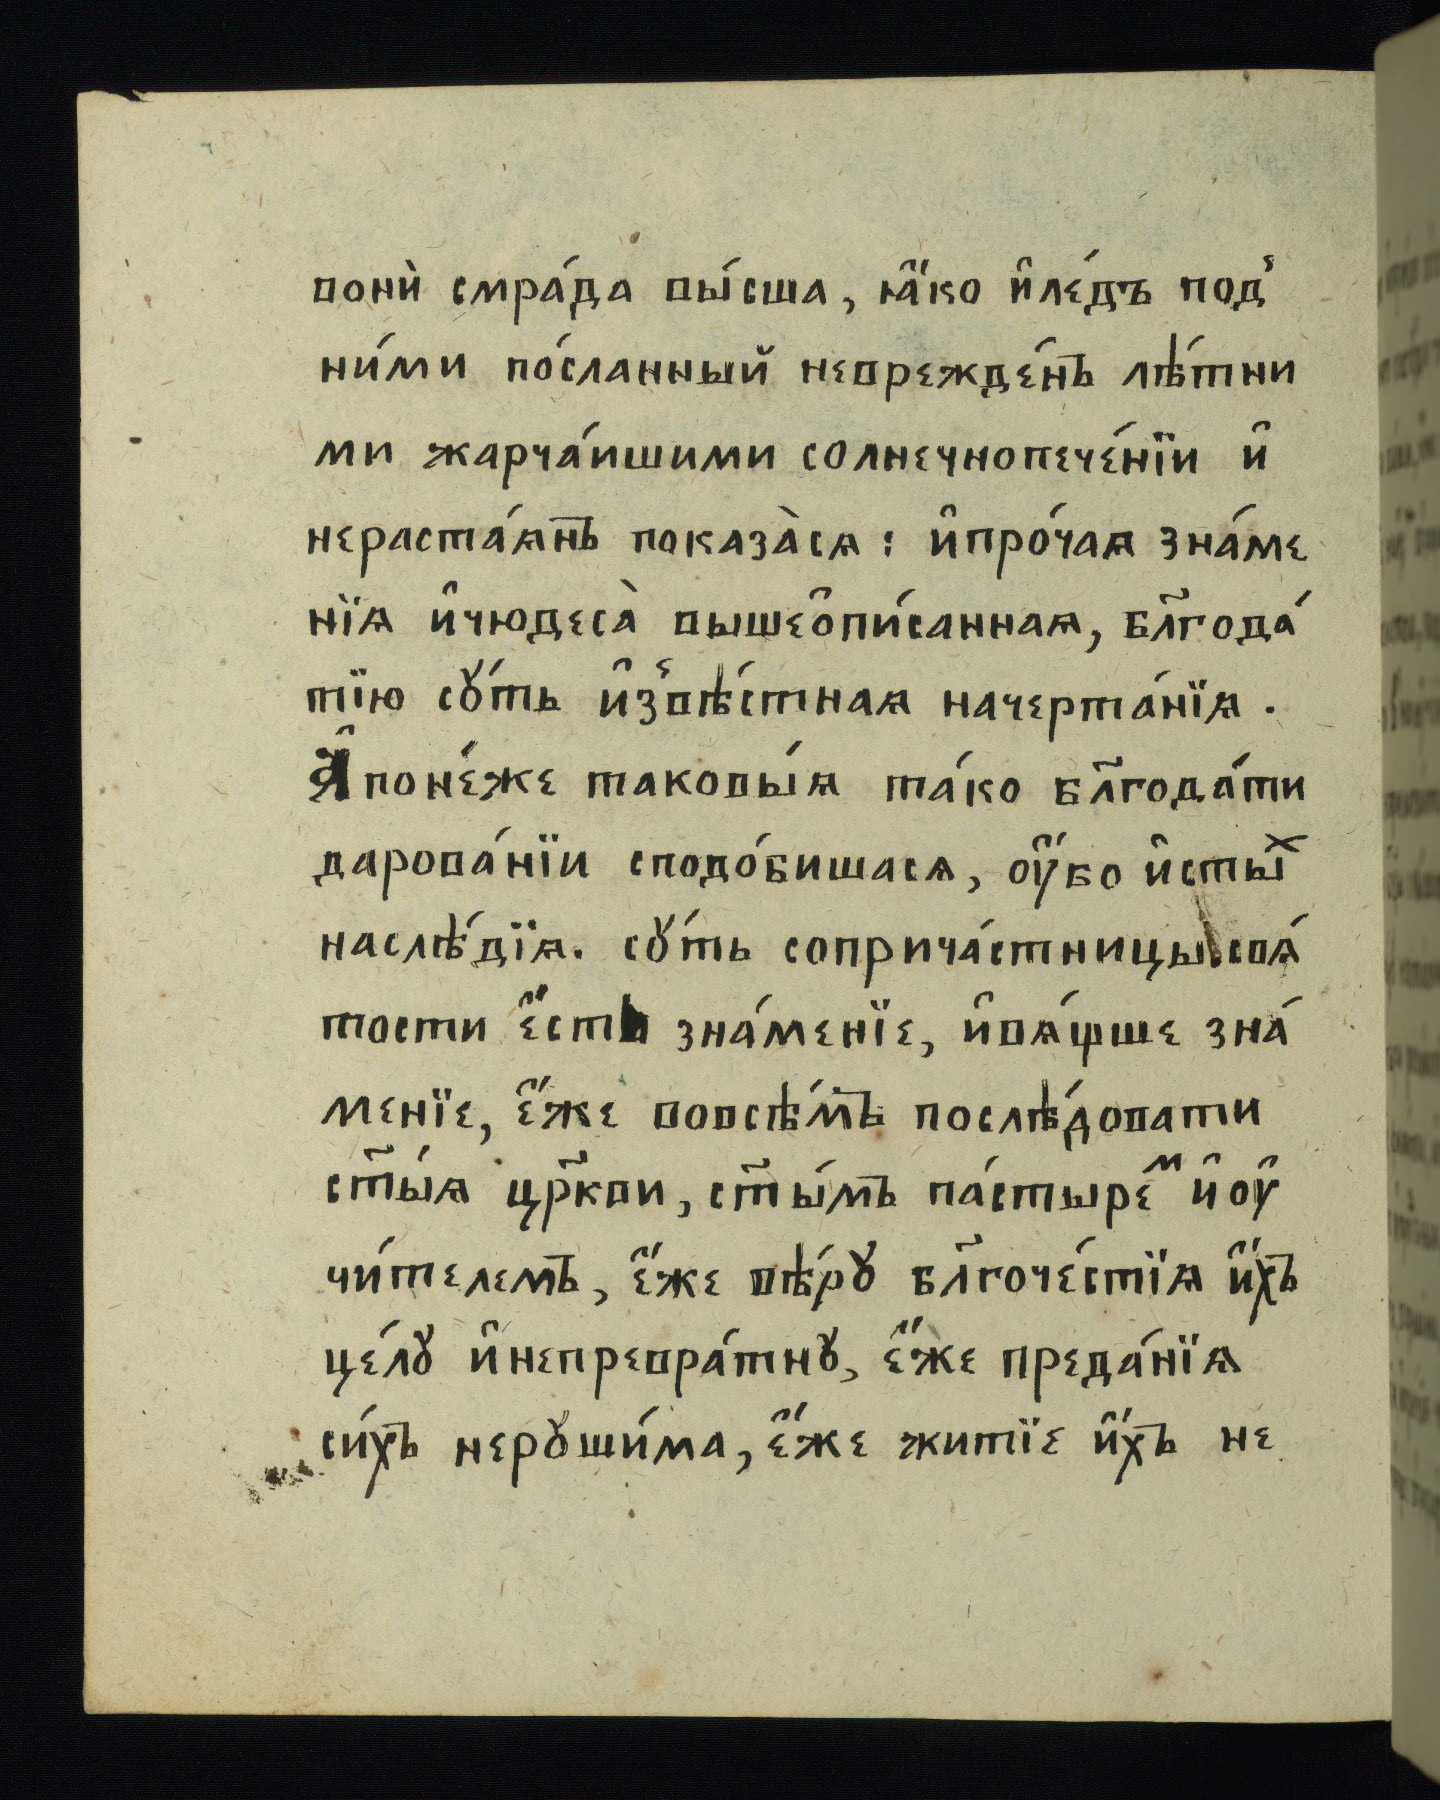 вонѝ смра́да вы́сша, ꙗ҆́ко и҆ле́дъ под̾
ни́ми по́сланный невражде́нъ лѣ́тни
ми жарча́ишими солнечнопече́нїи и҆
нераста́ѧнъ показа̀сѧ: и҆про́чаѧ зна́ме
нїѧ и҆чюдеса̀ вышео҆пи́саннаѧ, бл҃года́
тїю сꙋ́ть и҆з̾вѣ́стнаѧ начерта́нїѧ.
А҆поне́же таковы́ѧ та́ко бл҃года́ти
дарова́нїи сподо́бишасѧ, ᲂу҆́бо и҆сты́ⷯ
наслѣ́дїѧ. сꙋ́ть соприча́стницы. свѧ́
тости є҆́сть зна́менїе, и҆вѧ́щше зна́
менїе, є҆́же вовсѣ́мъ послѣ́довати
ст҃ы́ѧ цр҃кви, ст҃ы́мъ па́стыреⷨ и҆ᲂу҆
чи́телемъ, є҆́же вѣ́рꙋ бл҃гоче́стїѧ и҆́хъ
це́лꙋ и҆непревра́тнꙋ, є҆́же преда́нїѧ
си́хъ нерꙋши́ма, є҆́же житїе и҆́хъ не